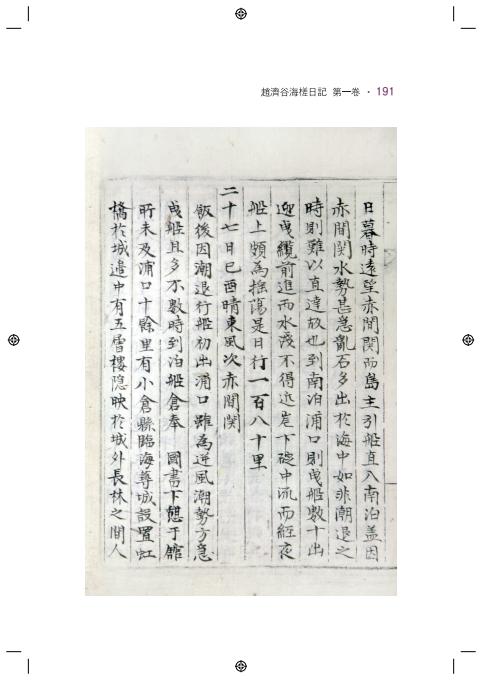 趙濟谷海槎日記 第一卷 · 191
日暮時遠望赤間関而島主引船直入南泊盖因
赤間関水勢甚急亂石多出於海中如非潮退之
時則難以直達故也到南泊浦口則曳船數十出
迎曳纜前進而水淺不得近岸下碇中流而經夜
船上頗為揺蕩是日行一百八十里
二十七日己酉晴東風次赤間関
飯後因潮退行船初出浦口雖為逆風潮勢方急
曳船且多不數時到泊船倉奉 國書下憩于館
所未及浦口十餘里有小倉縣臨海尋城設置虹
橋於城邉中有五層樓隠映於城外長林之間人